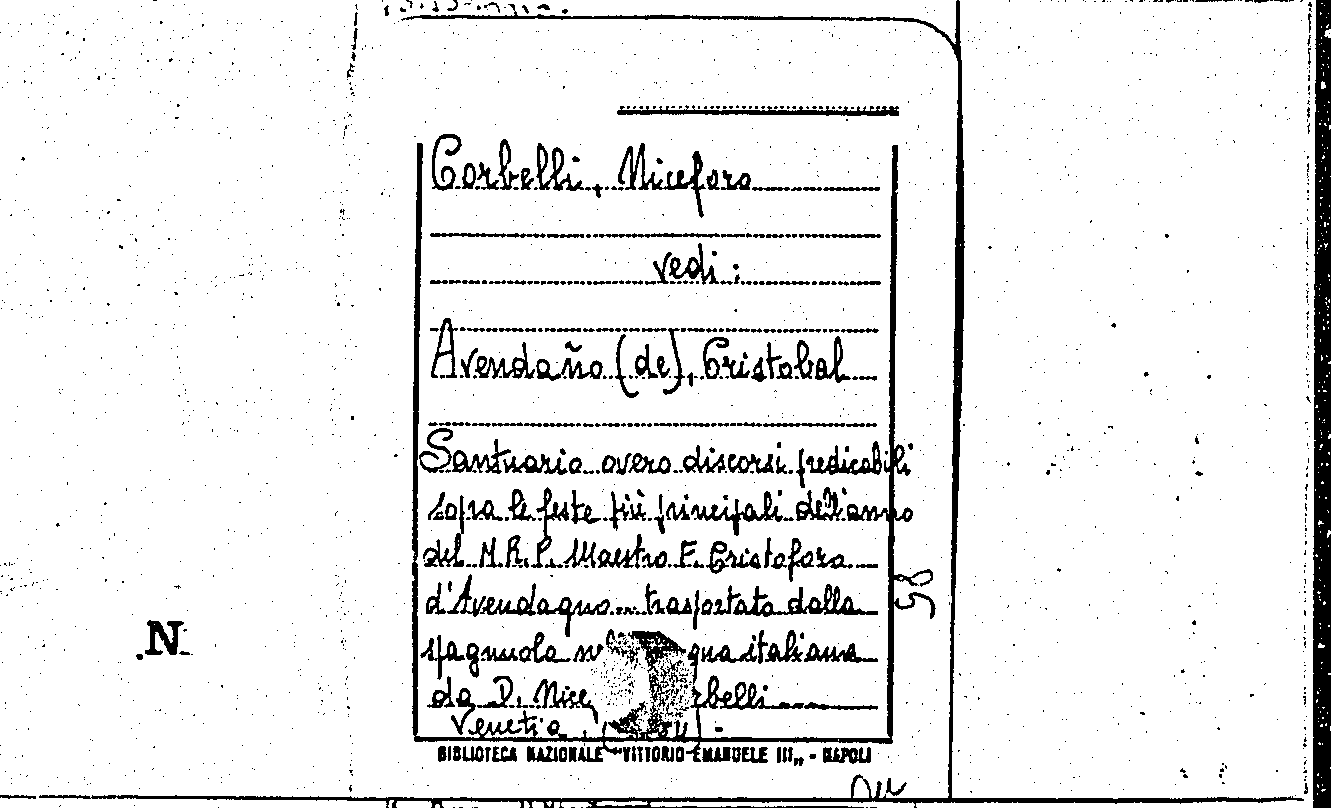 Corbelli, Niceforo
vedi:
Avendaño (de), Cristobal
Santuario overo discorsi predicabili
sopra le feste più principali dell'anno
del M.R.P. Maestro F. Cristoforo
d'Avendagno... trasportato dalla
spagnuola italiana
da D.
Venetia
BIBLIOTECA NAZIONALE "VITTORIO EMANUELE III„ - NAPOLI
N